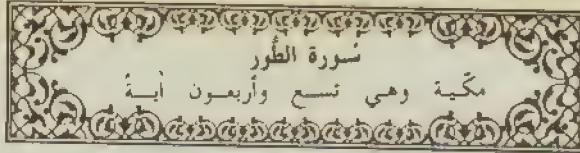 سُورة الطُّور
مكّية وهي تســع وأربعــون أيــةً